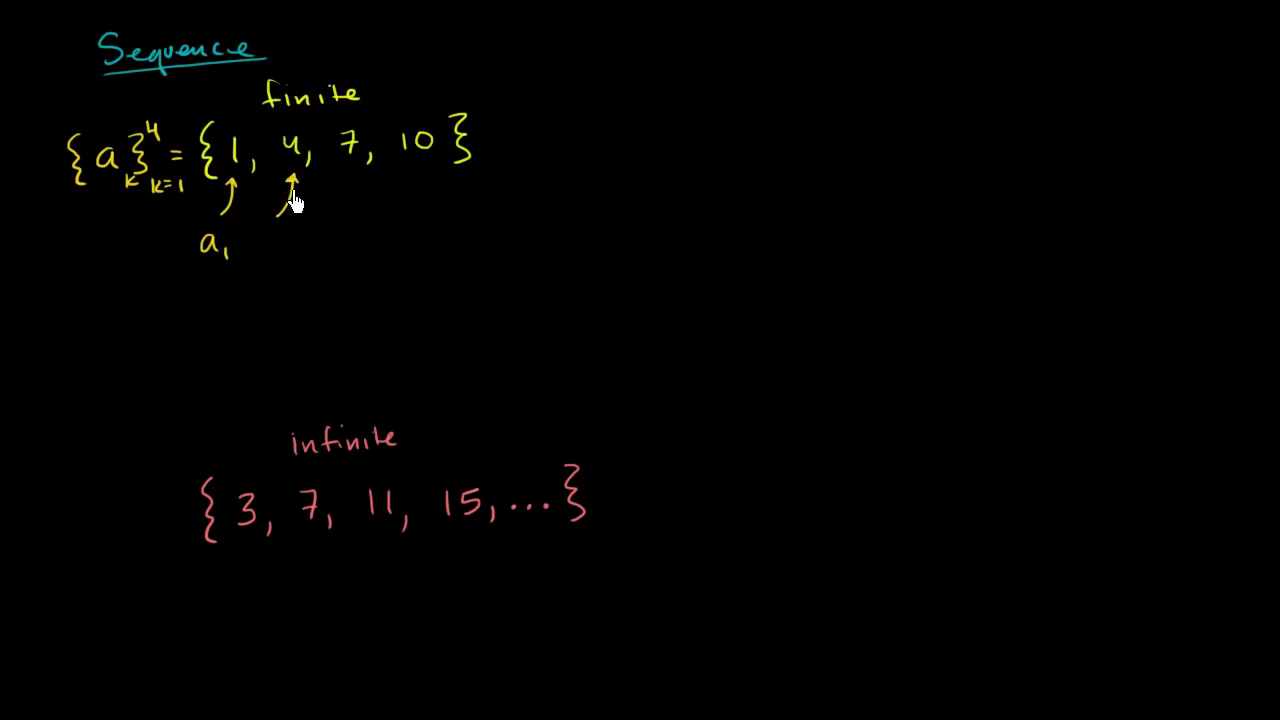 Sequence
finite
{a_k}_{k=1}^4 = {1, 4, 7, 10}
a_1
infinite
{3, 7, 11, 15, ...}